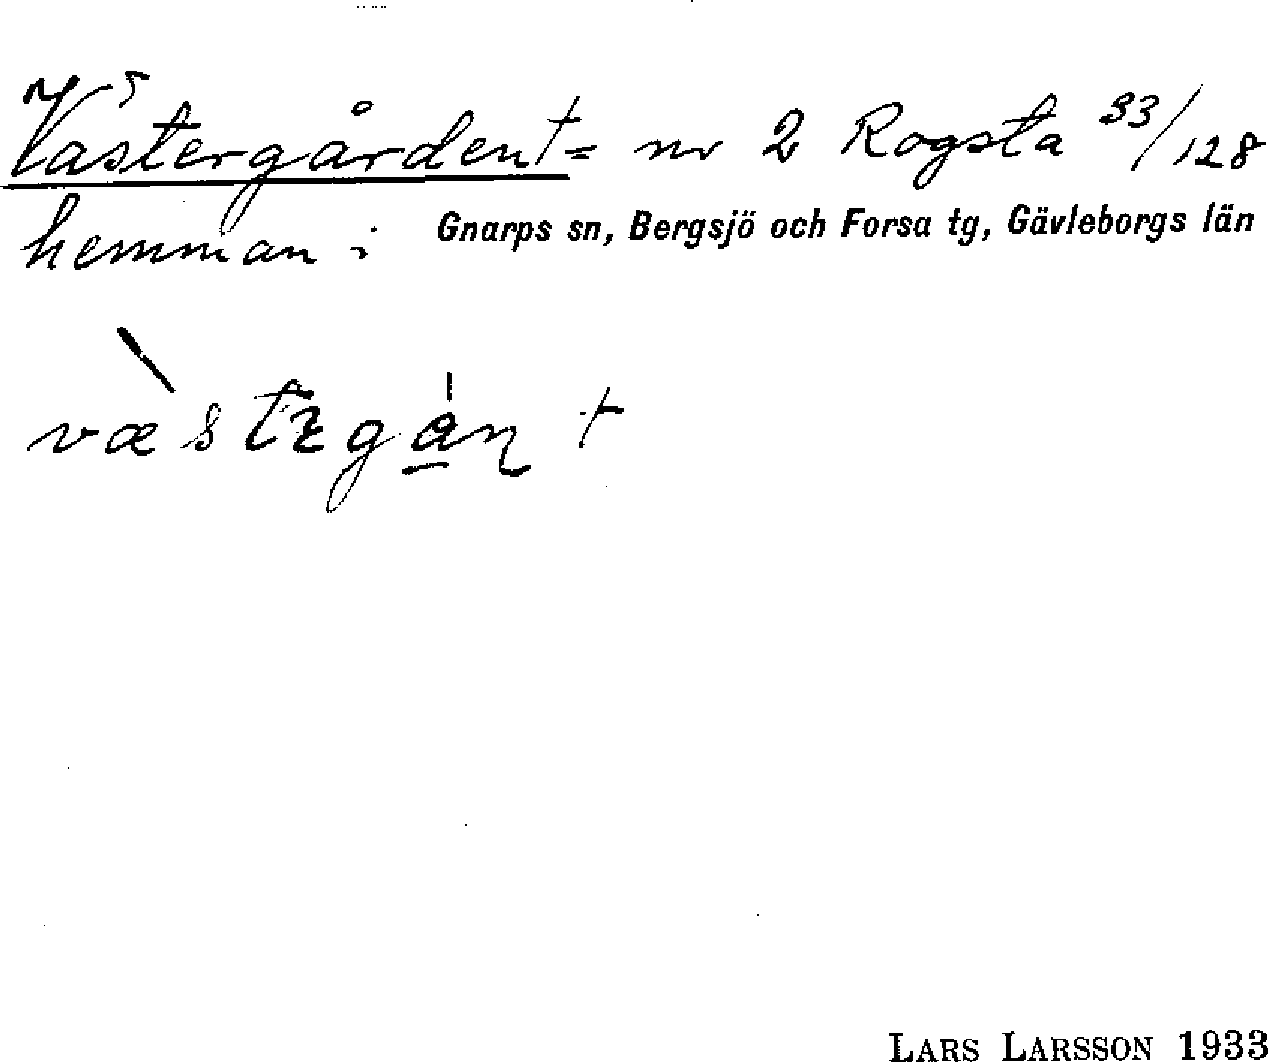 Västergården† = nr 2 Rogsta 33/128
hemman i Gnarps sn, Bergsjö och Forsa tg, Gävleborgs län
†
LARS LARSSON 1933